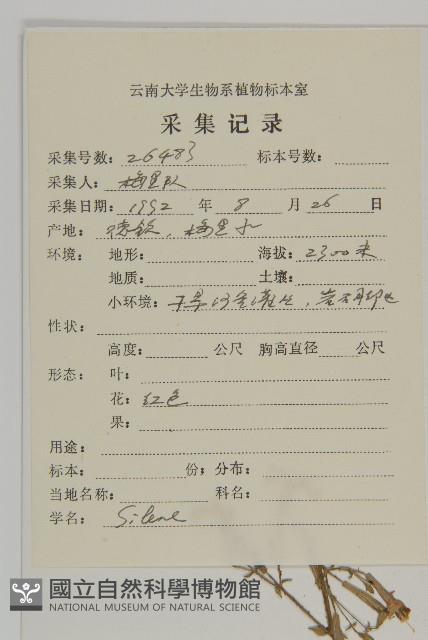 云南大学生物系植物标本室
采集记录
采集号数：26483 标本号数：
采集人：梅里队
采集日期：1992 年 8 月 26 日
产地：德钦，梅里
环境： 地形： 海拔：2300米
地质： 土壤：
小环境：干旱河谷灌丛，
性状：
高度： 公尺 胸高直径 公尺
形态： 叶：
花：红色
果：
用途：
标本： 份；分布：
当地名称： 科名：
学名：Silene
國立自然科學博物館
NATIONAL MUSEUM OF NATURAL SCIENCE